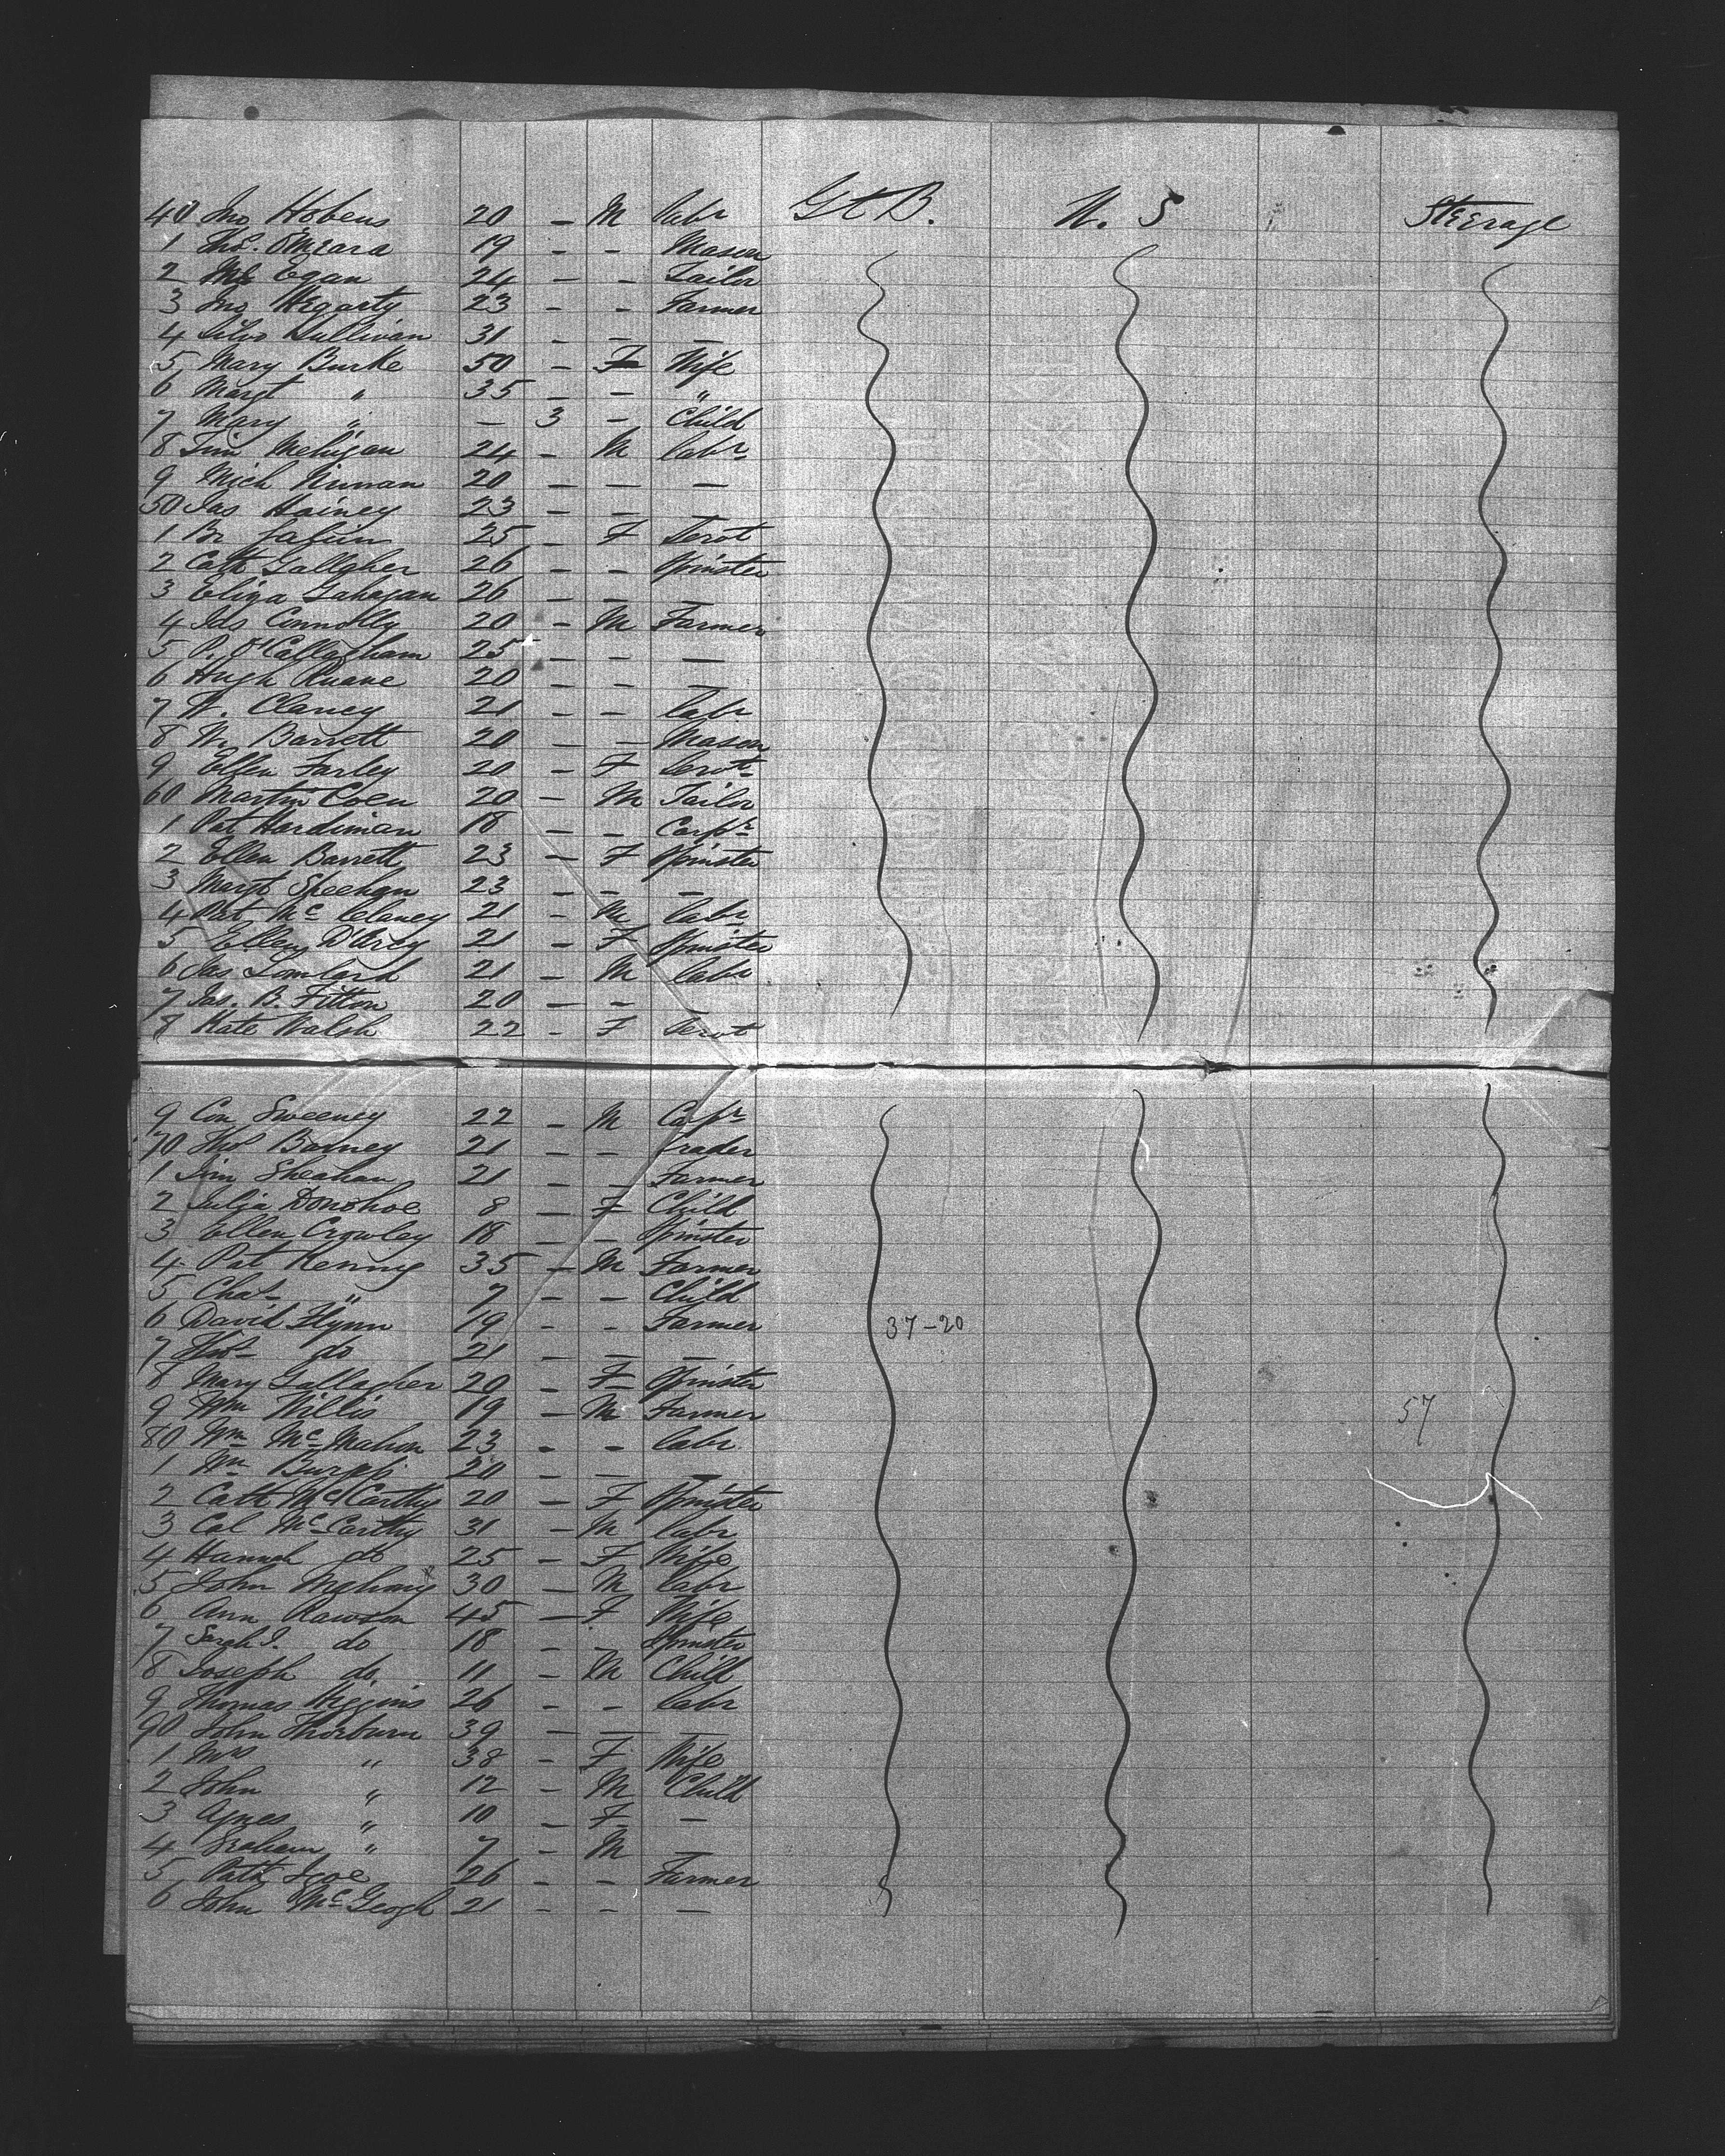 40 Jno Hobens 20 — M labr Gt B. U. S Steerage
1 Thos. OMeara 19 - - Mason
2 Egan 24 — - Tailor
3 Jno Hegarty 23 - - Farmer
4 Sullivan 31 — — —
5 Mary Burke 50 — F Wife
6 Margt " 35 — — "
7 Mary " — 3 - Child
8 Tim Mehigan 24 - M labr
9 Mich 20 — — —
50 Jas Hainey 23 — — —
1 25 — F Servt
2 Cath Gallaher 26 — - Spinster
3 Eliza Gahagan 26 — — —
4 Jas Connolly 20 - M Farmer
5 P. O'Callaghan 25 — — —
6 Hugh Ruane 20 — — —
7 Clancy 21 — - labr
8 Wm Barrett 20 — — Mason
9 Ellen Farley 20 — F Servt
60 Martin Coen 20 — M Tailor
1 Pat Hardiman 18 — - Carpr
2 Ellen Barrett 23 — F Spinster
3 Margt Sheehan 23 — — —
4 Pat Mc Claney 21 — M labr
5 Ellen D'Arcy 21 — F Spinster
6 Jas Lombard 21 — M labr
7 Jas. B. Fitton 20 — —
8 Kate Walsh 22 - F Servt
9 Con Sweeney 22 — M Capr
70 Thos 21 — - trader
1 Tim Sheahan 21 — — Farmer
2 Julia Donohoe 8 — F Child
3 Ellen Crowley 18 — — Spinster
4 Pat Kenny 35 — M Farmer
5 Chas " 7 — - Child
6 David Flynn 19 — - Farmer 37-20
7 Thos do 21 — — —
8 Mary Gallagher 20 — F Spinster
9 Wm Willis 19 — M Farmer 57
80 Wm McMahon 23 - - labr
1 Wm Burgess 20 — — —
2 Cath McCarthy 20 — F Spinster
3 Cal McCarthy 31 — M labr
4 Hannah do 25 — F Wife
5 John Mahony 30 — M labr
6 Ann Rawson 45 — F Wife
7 Sarah J. do 18 — — Spinster
8 Joseph do 11 — M Child
9 Thomas Higgins 26 - - labr
90 John Thorburn 39 — — —
1 Mrs " 38 - F Wife
2 John " 12 — M Child
3 Agnes " 10 — F —
4 Graham " 7 - M —
5 Patk 26 - - Farmer
6 John McGeogh 21 - - —